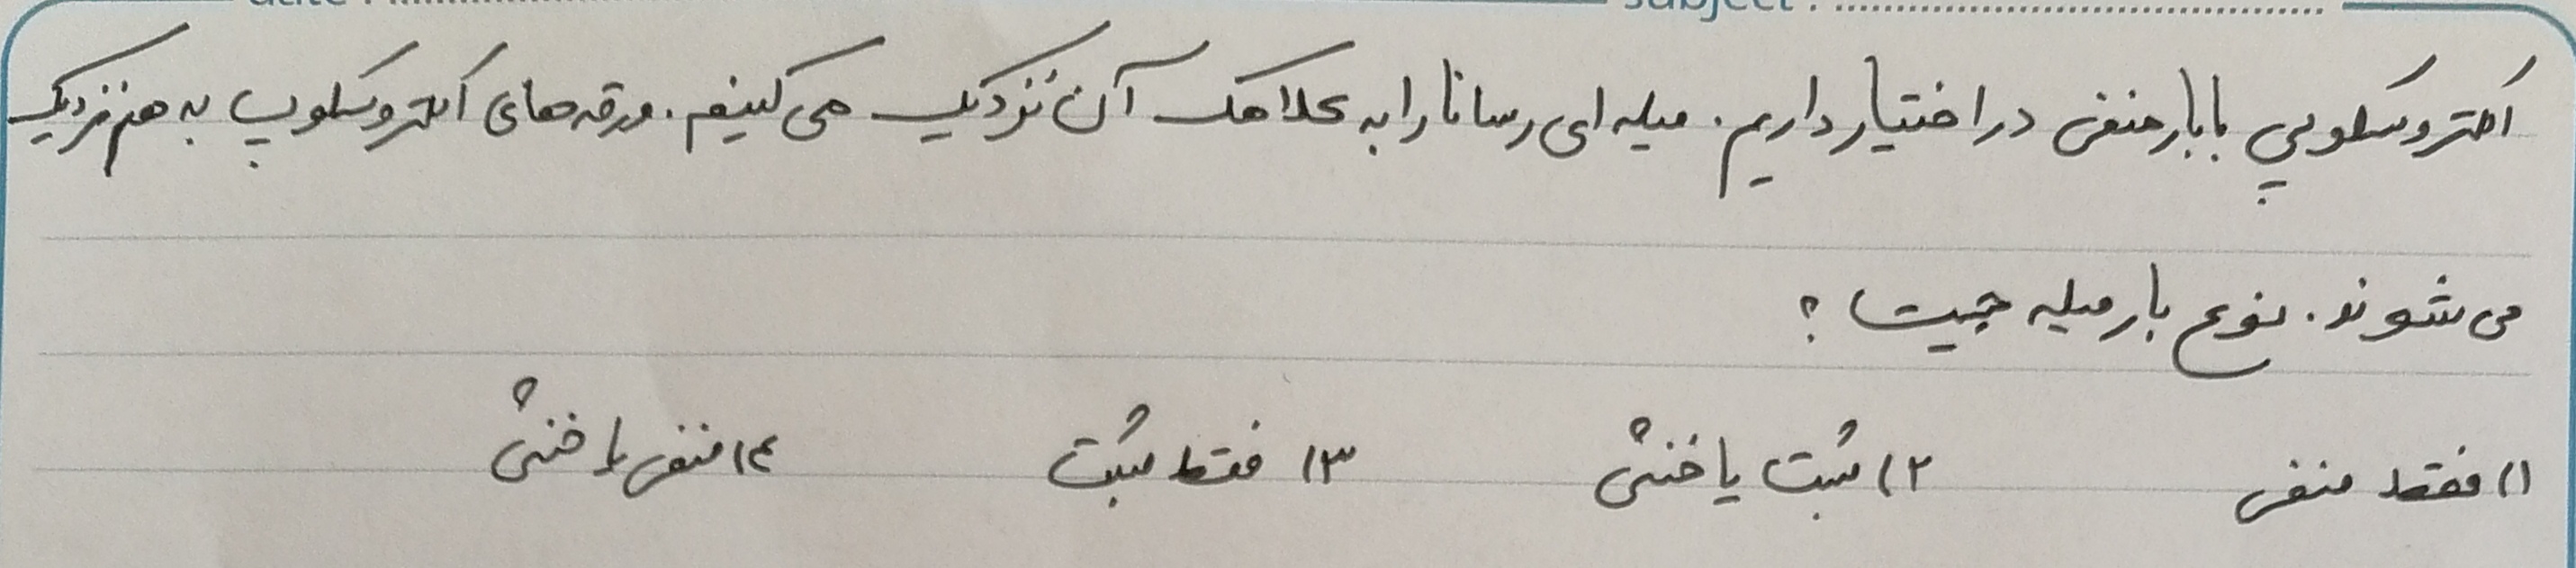 date : ........................ subject : ........................
الکتروسکوپی با بار منفی در اختیار داریم. میله ای رسانا را به کلاهک آن نزدیک می کنیم. ورقه های الکتروسکوپ به هم نزدیک
می شوند. نوع بار میله چیست؟
۱) فقط منفی ۲) مثبت یا خنثی ۳) فقط مثبت ۴) منفی یا خنثی